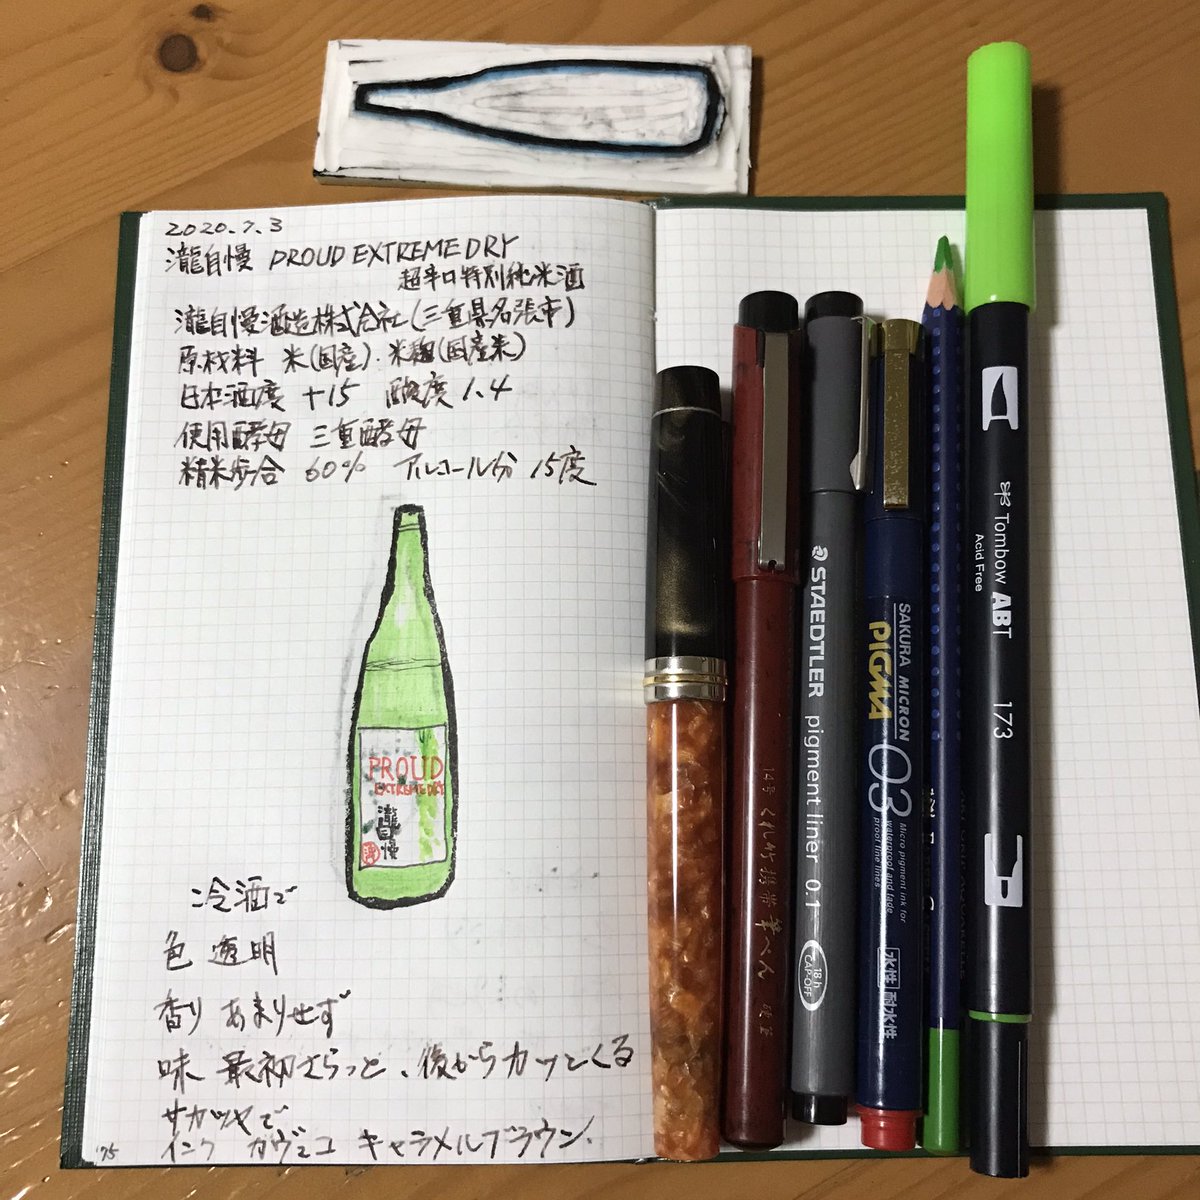 2020.7.3
瀧自慢 PROUD EXTREME DRY
超辛口特別純米酒
瀧自慢酒造株式会社(三重県名張市)
原材料 米(国産)．米麹(国産米)
日本酒度 +15 酸度 1.4
使用酵母 三重酵母
精米歩合 60% アルコール分 15度
PROUD
EXTREME DRY
瀧自慢
冷酒で
色 透明
香り あまりせず
味 最初さらっと、後からカッとくる
サカツヤで
インク カヴェコ キャラメルブラウン.
'75
14号 くれ竹携帯筆ぺん
STAEDTLER pigment liner 0.1
18h
CAP-OFF
SAKURA MICRON
PIGMA
03
Micro pigment ink for
waterproof and fade
proof line lines.
水性
耐水性
Tombow ABT 173
Acid Free